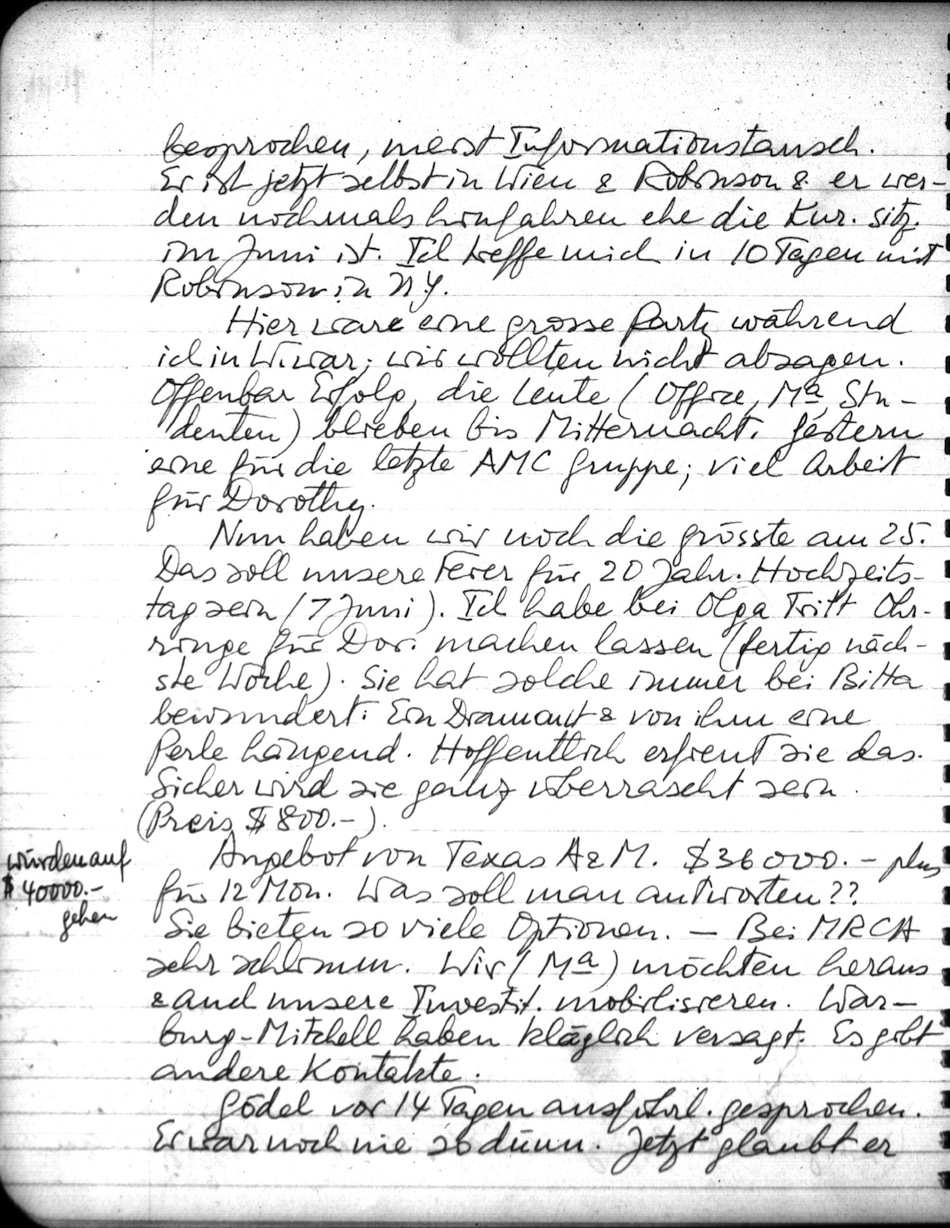 besprochen, meist Informationstausch.
Er ist jetzt selbst in Wien & Robinson & er wer-
den nochmals hinfahren ehe die Kur. sitz.
im Juni ist. Ich treffe mich in 10 Tagen mit
Robinson in N.Y.
Hier ware eine grosse Party während
ich in W. war; wir wollten nicht absagen.
Offenbar Erfolg, die Leute (Office, Ma Stu-
denten) blieben bis Mitternacht. Gestern
eine für die letzte AMC Gruppe; viel Arbeit
für Dorothy.
Nun haben wir noch die grösste am 25.
Das soll unsere Feier für 20 Jahr. Hochzeits-
tag sein (7 Juni). Ich habe bei Olga Tritt Ohr-
ringe für Dor. machen lassen (fertig näch-
ste Woche). Sie hat solche immer bei Bitta
bewundert: Ein Diamant & von ihm eine
Perle hängend. Hoffentlich erfreut sie das.
Sicher wird sie ganz überrascht sein.
(Preis $ 800.-).
würden auf
$ 40000.-
gehen
Angebot von Texas A & M. $36000.- plus
für 12 Mon. Was soll man antworten??
Sie bieten so viele Optionen. — Bei MRCA
sehr schlimm. Wir (Ma) möchten heraus
& auch unsere Investit. mobilisieren. War-
burg-Mitchell haben kläglich versagt. Es gibt
andere Kontakte.
Gödel vor 14 Tagen ausführl. gesprochen.
Er war noch nie so dünn. Jetzt glaubt er